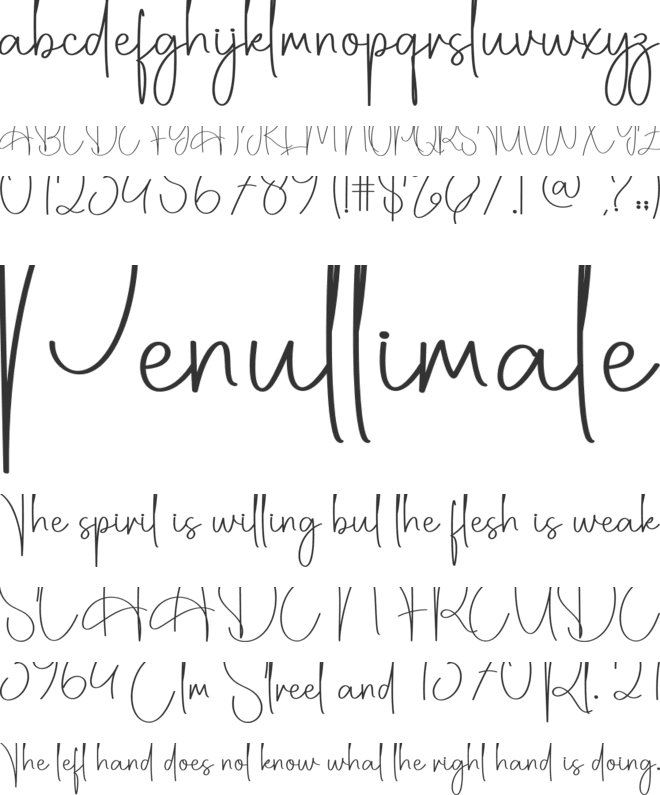 abcdefghijklmnopqrstuvwxyz
ABCDEFGHIJKLMNOPQRSTUVWXYZ
0123456789 (!#$%&/.|@ ,?:;)
Penultimate
The spirit is willing but the flesh is weak
SCHADENFREUDE
3964 Elm Street and 1370 Rt. 21
The left hand does not know what the right hand is doing.